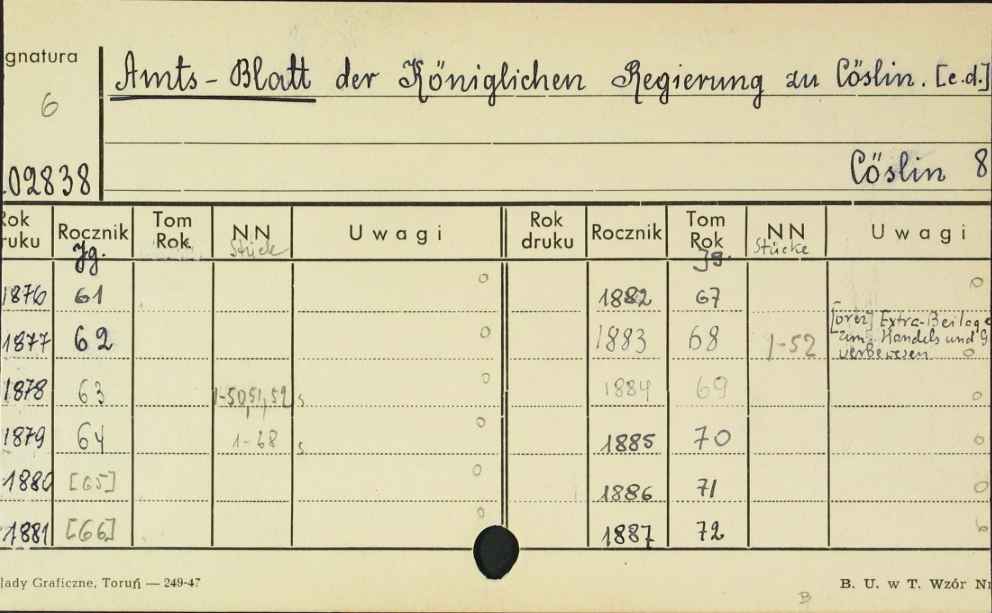 gnatura
Amts-Blatt der Königlichen Regierung zu Cöslin. [e.d.]
6
02838
Cöslin 8
Rok druku Rocznik Tom Rok NN Uwagi Rok druku Rocznik Tom Rok NN Uwagi
Jg. Stück Jg. Stücke
1876 61 0 1882 67 0
1877 62 0 1883 68 1-52 [oraz] Extra-Beilage
zum Handels und G
verbewesen 0
1878 63 1-50,51,52 s 0 1884 69 0
1879 64 s 0 1885 70 0
1880 [65] 0 1886 71 0
1881 [66] 0 1887 72
łady Graficzne, Toruń — 249-47
B. U. w T. Wzór Nr
B